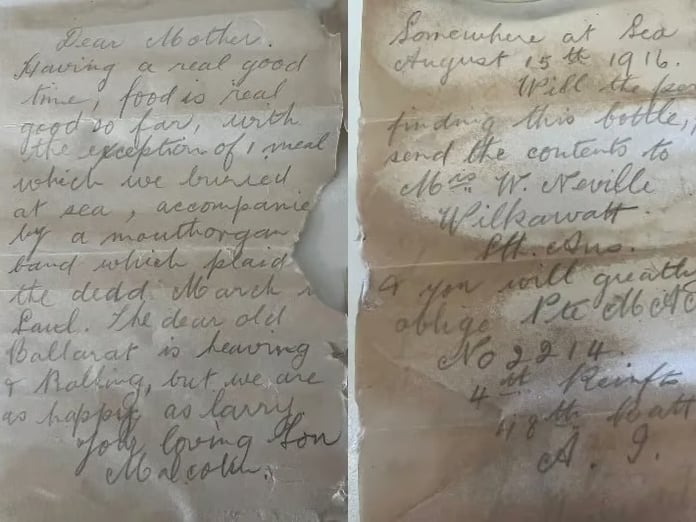 Dear Mother.
Having a real good
time, food is real
good so far, with
the exception of 1 meal
which we buried
at sea, accompanie
by a mouthorgan
band which plaid
the dedd March
Saul. The dear old
Ballarat is heaving
& Rolling, but we are
as happy as larry
Your loving Son
Malcolm.
Somewhere at Sea
August 15th 1916.
Will the per
finding this bottle,
send the contents to
Mrs W. Neville
Wilkawatt.
Sth. Aus.
& you will greatly
oblige Pte M. A
No 2214.
4th Reinfts
48th Batt
A. I.